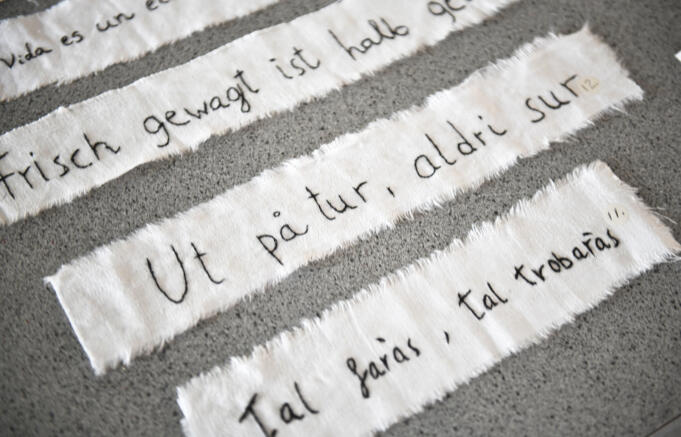 Vida es un
Frisch gewagt ist halb
Ut på tur, aldri sur 12
Tal faràs, tal trobaràs 11.